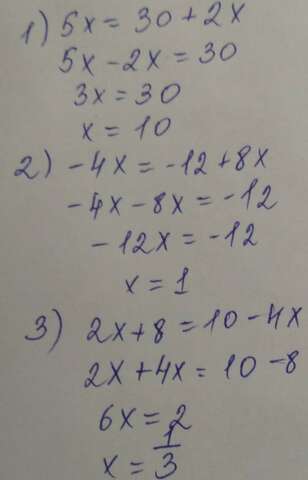 1) 5x = 30 + 2x
5x - 2x = 30
3x = 30
x = 10
2) -4x = -12 + 8x
-4x - 8x = -12
-12x = -12
x = 1
3) 2x + 8 = 10 - 4x
2x + 4x = 10 - 8
6x = 2
x = 1/3